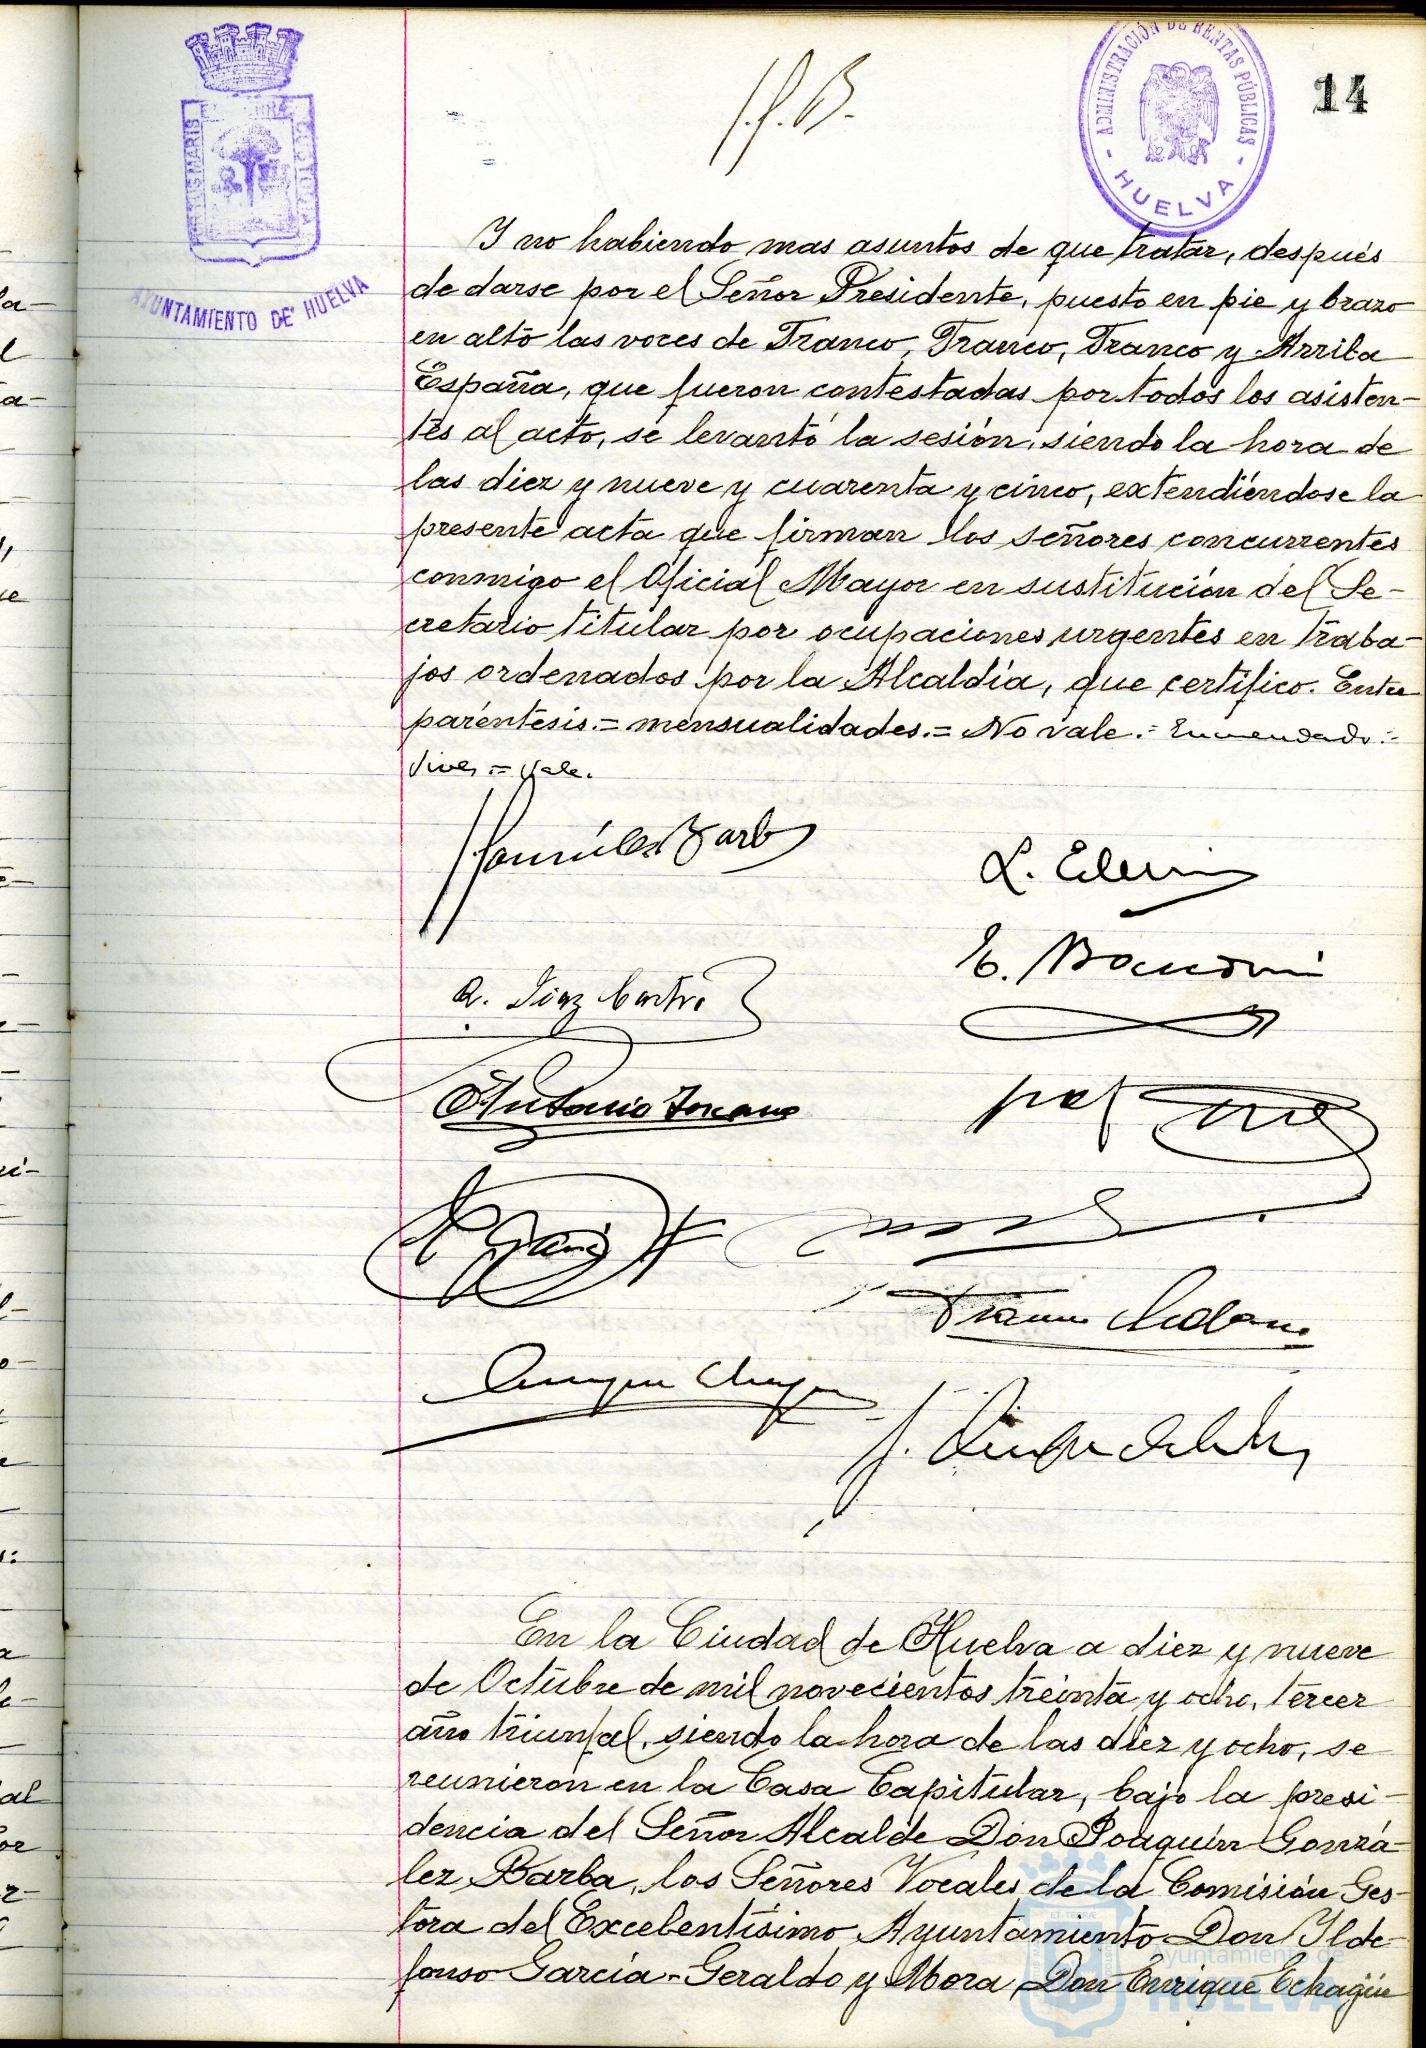 ADMINISTRACIÓN DE RENTAS PÚBLICAS
- HUELVA -
14
AYUNTAMIENTO DE HUELVA
Y no habiendo mas asuntos de que tratar, después
de darse por el Señor Presidente, puesto en pie y brazo
en alto las voces de Franco, Franco, Franco y Arriba
España, que fueron contestadas por todos los asisten-
tes al acto, se levantó la sesión, siendo la hora de
las diez y nueve y cuarenta y cinco, extendiéndose la
presente acta que firman los señores concurrentes
conmigo el Oficial Mayor en sustitución del Se-
cretario titular por ocupaciones urgentes en traba-
jos ordenados por la Alcaldía, que certifico. Entre
paréntesis.= mensualidades.= No vale.= Enmendado:=
= vale.
González Barba
A. Díaz Castro
Antonio Toscano
En la Ciudad de Huelva a diez y nueve
de Octubre de mil novecientos treinta y ocho, tercer
año triunfal, siendo la hora de las diez y ocho, se
reunieron en la Casa Capitular, bajo la presi-
dencia del Señor Alcalde Don Joaquín Gonzá-
lez Barba, los Señores Vocales de la Comisión Ges-
tora del Excelentísimo Ayuntamiento Don Ilde-
fonso García-Geraldo y Mora, Don Enrique Echagüe
Ayuntamiento de
HUELVA